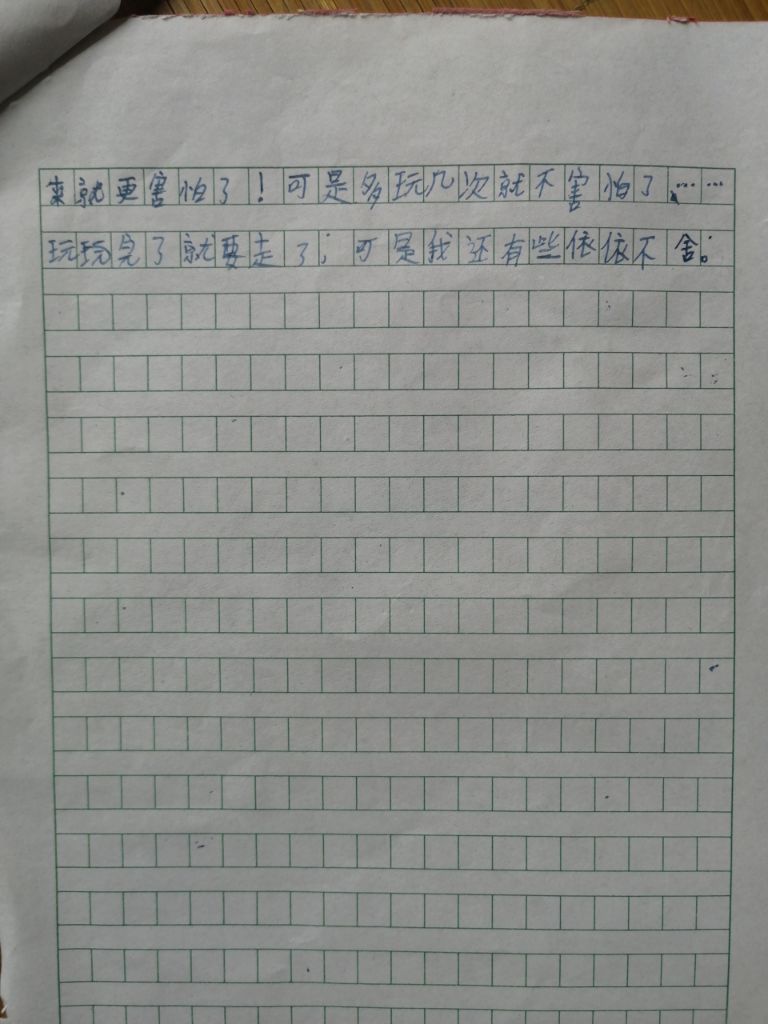 来就更害怕了！可是多玩几次就不害怕了……
玩玩完了就要走了；可是我还有些依依不舍。